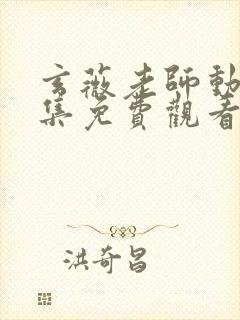 玄薇老師動
集免費觀看
洪奇昌